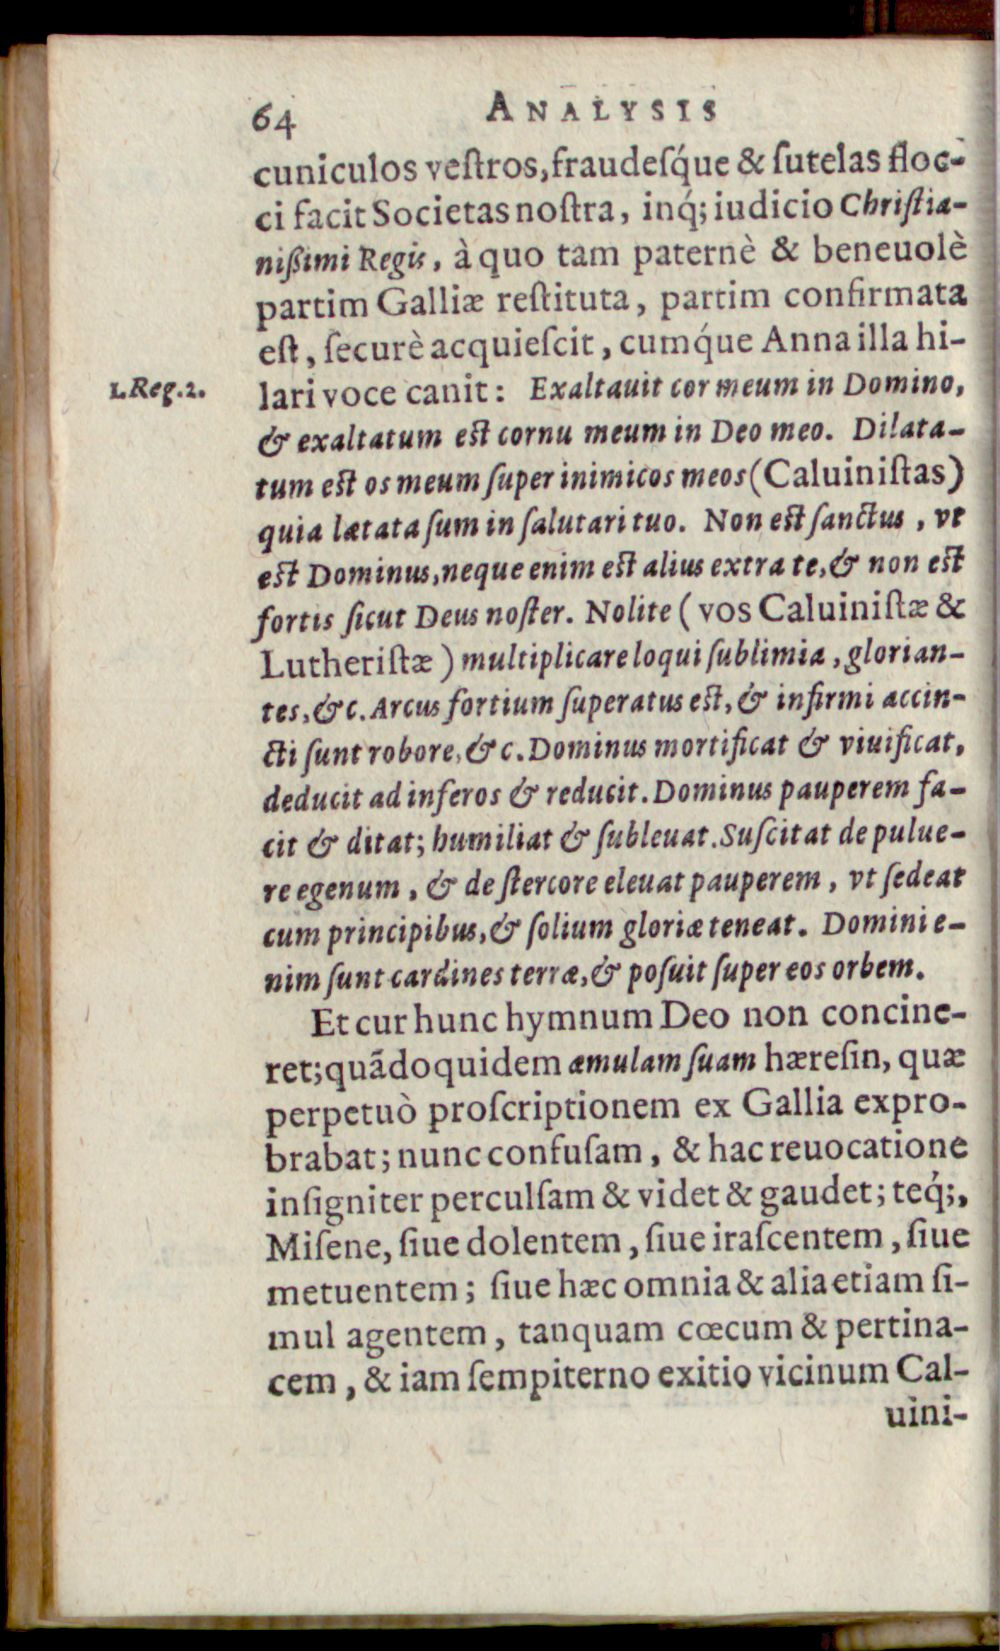 64 ANALYSIS
cuniculos veſtros, fraudeſq́ue & ſutelas floc-
ci facit Societas noſtra, inq́; iudicio Chriſtia-
nißimi Regis, à quo tam paternè & beneuolè
partim Galliæ reſtituta, partim confirmata
eſt, ſecurè acquieſcit, cumq́ue Anna illa hi-
1. Reg. 2.
lari voce canit: Exaltauit cor meum in Domino,
& exaltatum eſt cornu meum in Deo meo. Dilata-
tum eſt os meum ſuper inimicos meos (Caluiniſtas)
quia lætata ſum in ſalutari tuo. Non eſt ſanctus, vt
eſt Dominus, neque enim eſt alius extra te, & non eſt
fortis ſicut Deus noſter. Nolite (vos Caluiniſtæ &
Lutheriſtæ) multiplicare loqui ſublimia, glorian-
tes, &c. Arcus fortium ſuperatus eſt, & infirmi accin-
cti ſunt robore, &c. Dominus mortificat & viuificat,
deducit ad inferos & reducit. Dominus pauperem fa-
cit & ditat; humiliat & ſubleuat. Suſcitat de pulue-
re egenum, & de ſtercore eleuat pauperem, vt ſedeat
cum principibus, & ſolium gloriæ teneat. Domini e-
nim ſunt cardines terræ, & poſuit ſuper eos orbem.
Et cur hunc hymnum Deo non concine-
ret; quãdoquidem æmulam ſuam hæreſin, quæ
perpetuò proſcriptionem ex Gallia expro-
brabat; nunc confuſam, & hac reuocatione
inſigniter perculſam & videt & gaudet; teq́;,
Miſene, ſiue dolentem, ſiue iraſcentem, ſiue
metuentem; ſiue hæc omnia & alia etiam ſi-
mul agentem, tanquam cœcum & pertina-
cem, & iam ſempiterno exitio vicinum Cal-
uini-